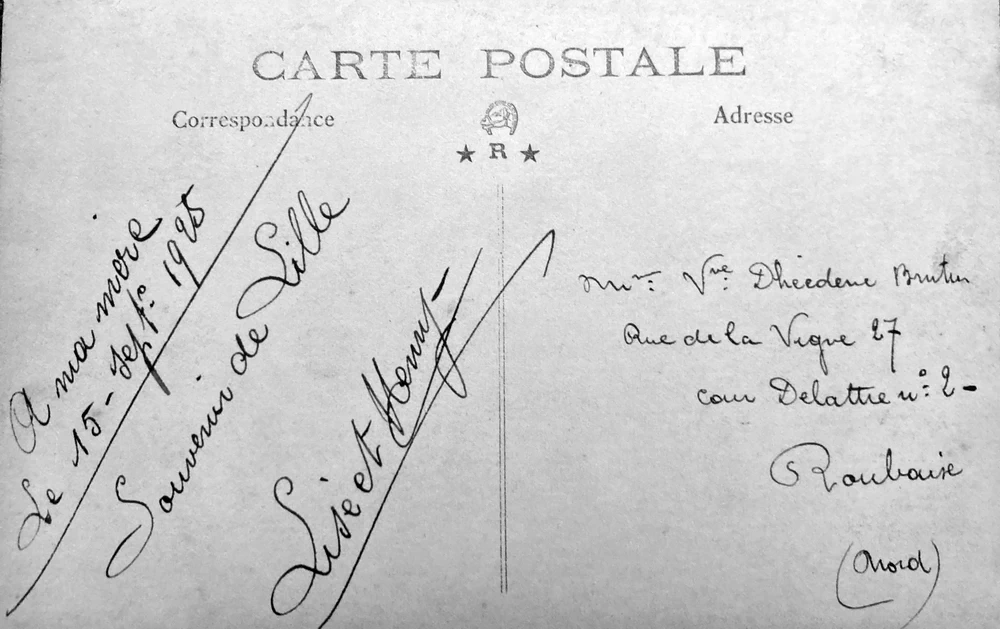 CARTE POSTALE
Correspondance
Adresse
★ R ★
A ma mère
Le 15 - Sept: 1925
Souvenir de Lille
Lise et Henry
Mme: Vve: Dhiedene Brutin
Rue de la Vigne 27
cour Delattre n: 2 -
Roubaise
(Nord)